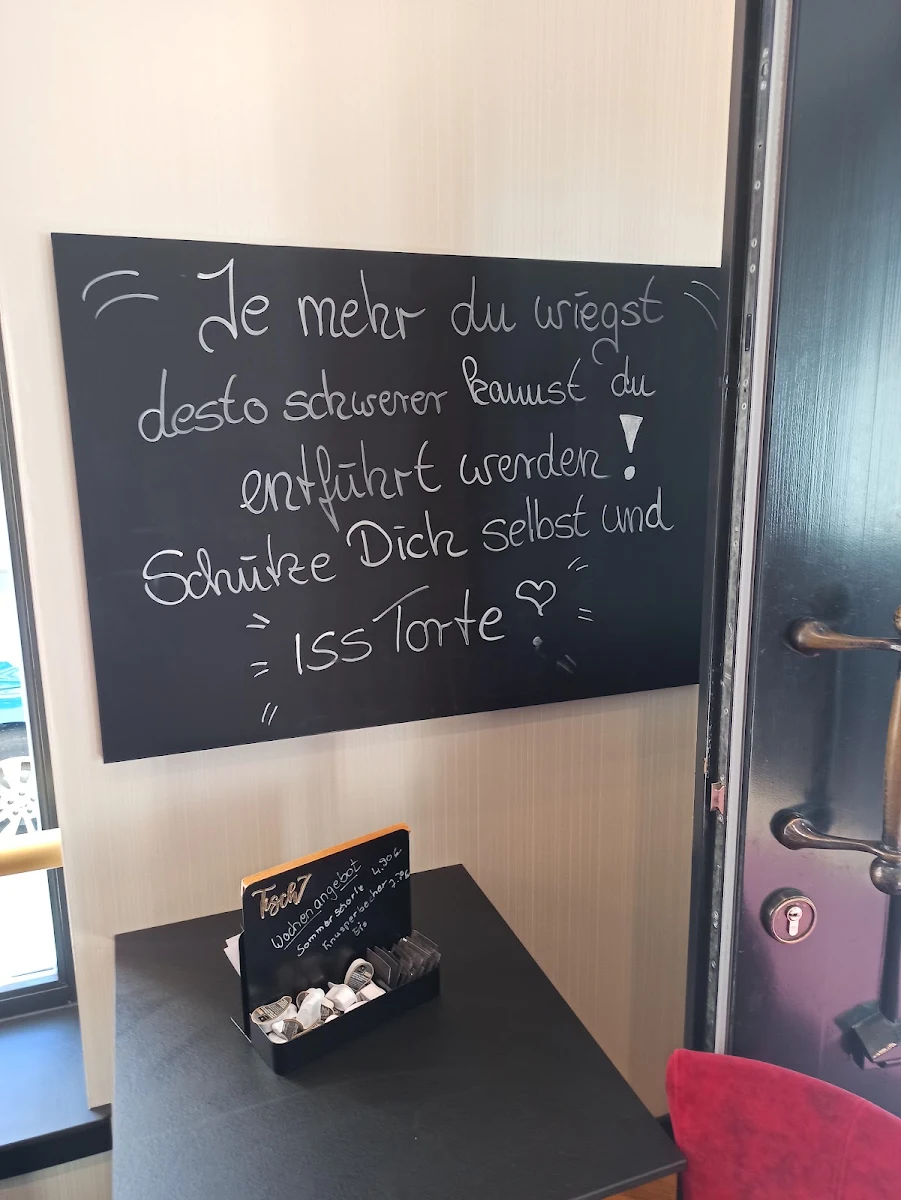 Je mehr du wiegst
desto schwerer kannst du
entführt werden!
Schütze Dich selbst und
Iss Torte ♡
Tisch 7
Wochenangebot
Sommerschorle 4,90€
Knusperbecher
Eis